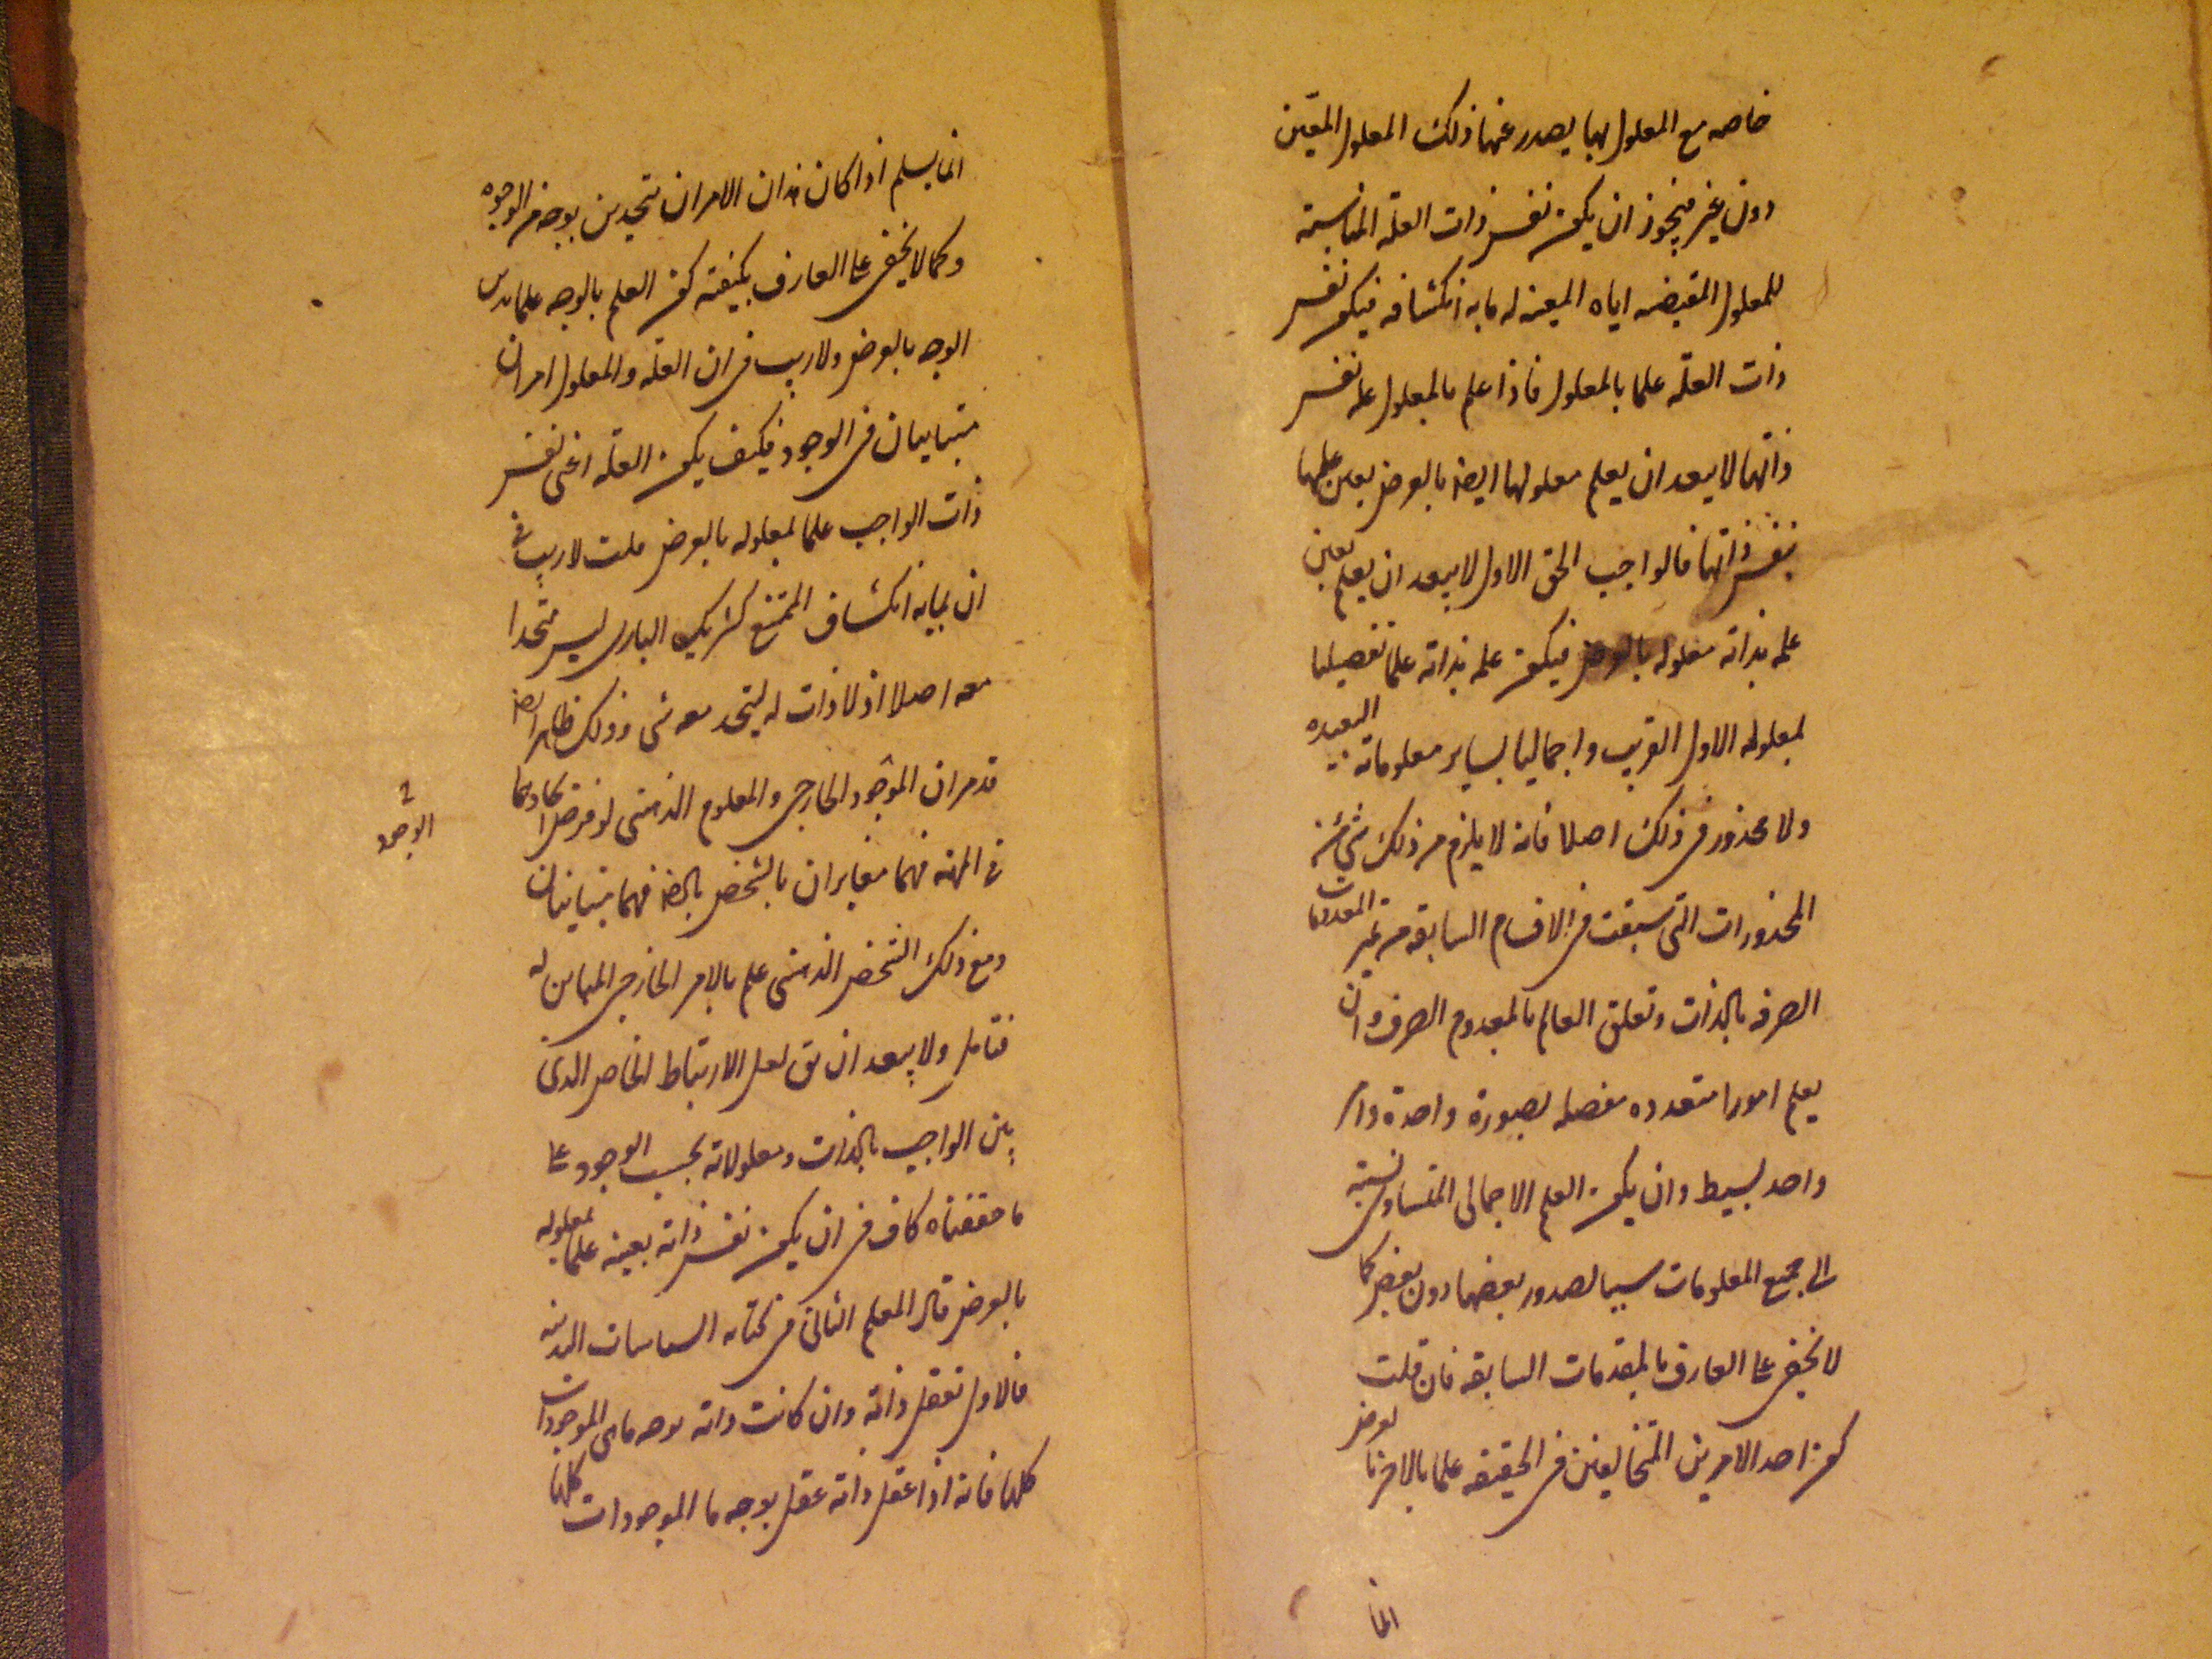 خاصه مع المعلول بها يصدر عنها ذلك المعلول المعين
دون غيره فيجوز ان يكون نفس ذات العلة المناسبة
للمعلول المقتضيه اياه المعينه له ما به انكشافه فيكون نفس
ذات العلة علما بالمعلول فاذا علم بالمعلول علة نفس
ذاتها لا يبعد ان يعلم معلولها ايضا بالعرض بعين علمها
بنفس ذاتها فالواجب الحق الاول لا يبعد ان يعلم بعين
علمه بذاته معلوله بالعرض فيكون علمه بذاته علما تفصيليا
لمعلوله الاول القريب واجماليا بساير معلوماته البعيده
ولا محذور في ذلك اصلا فانه لا يلزم من ذلك شي من
المحذورات التي سبقت في الاقسام السابقه من تميز المعدومات
الصرفه بالذات وتعلق العالم بالمعدوم الصرف وان
يعلم امورا متعدده مفصله بصورة واحدة وامر
واحد بسيط وان يكون العلم الاجمالي المتساوي نسبته
الى جميع المعلومات سببا لصدور بعضها دون بعض كما
لا يخفى على العارف بالمقدمات السابقه فان قلت
كون احد الامرين المتخالفين في الحقيقه علما بالاخر بالعرض
انما
انما يسلم اذا كان هذان الامران متحدين بوجه من الوجوه
وكما لا يخفى على العارف بكيفية كون العلم بالوجه علما بذي
الوجه بالعرض ولا ريب في ان العلة والمعلول امران
متباينان في الوجود فكيف يكون العلة اعني نفس
ذات الواجب علما لمعلوله بالعرض قلت لا ريب في
ان ما به انكشاف الممتنع كشريك الباري ليس متحدا
معه اصلا اذ لا ذات له ليتحد معه شي وذلك ظاهر ايضا
قد مر ان الموجود الخارجي والمعلوم الذهني لو فرض اتحادهما
في المهية فهما مغايران بالشخص بالضرورة فهما متباينان
الوجود
ومع ذلك الشخص الذهني علم بالامر الخارجي المباين له
فتامل ولا يبعد ان يق لعل الارتباط الخاص الذي
بين الواجب بالذات ومعلولاته بحسب الوجود على
ما حققناه كاف في ان يكون نفس ذاته بعينه علما بمعلوله
بالعرض قال المعلم الثاني في كتابه السياسات المدنيه
فالاول تعقل ذاته وان كانت ذاته بوجه ما هي الموجودات
كلها فانه اذا عقل ذاته عقل بوجه ما الموجودات كلها